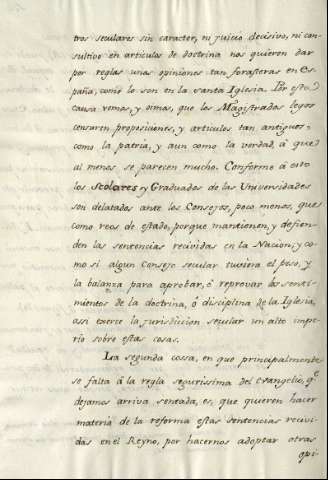 tros seculares sin caracter, ni juicio decisivo, ni con-
sultivo en articulos de doctrina nos quieren dar
por reglas unas opiniones tan forasteras en Es-
paña, como lo son en la santa Iglesia. Por esta
causa vemos, y oimos, que los Magistrados legos
censuren proposiciones, y articulos tan antiguos
como la patria, y aun como la verdad, á que
al menos se parecen mucho. Conforme á esto
los Escolares y Graduados de las Universidades
son delatados ante los Consejos, poco menos, que
como reos de estado, porque mantienen, y defien-
den las sentencias recividas en la Nacion, y co-
mo si algun Consejo secular tuviera el peso, y
la balanza para aprobar, ó reprovar los senti-
mientos de la doctrina, ó disciplina de la Iglesia,
assi exerce la jurisdiccion secular un alto impe-
rio sobre estas cosas.
La segunda cosa, en que principalmente
se falta á la regla segurissima del evangelio, q.e
dejamos arriva sentada, es, que quieren hacer
materia de la reforma estas sentencias recivi-
das en el Reyno, por hacernos adoptar otras
opi-